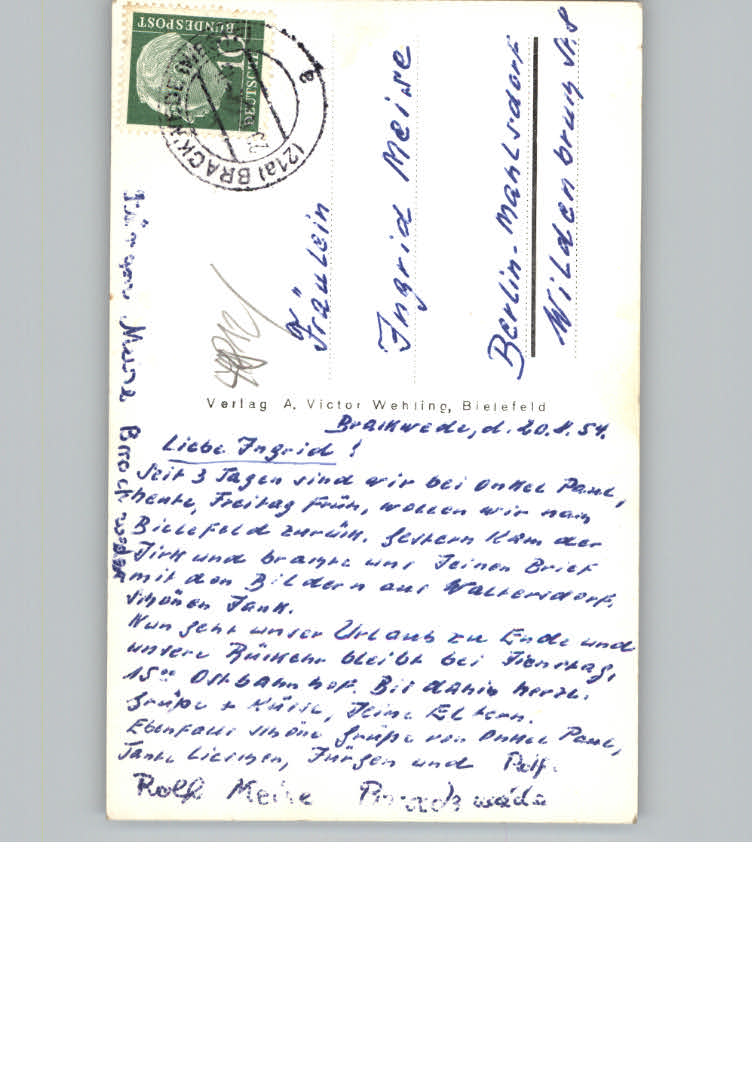 DEUTSCHE
BUNDESPOST
10
(21a) BRACKWEDE
e
Fräulein
Ingrid Meise
Berlin-Mahlsdorf
Wildenbruchstr 8
Verlag A. Victor Wehling, Bielefeld
Brackwede, d. 20.8.54.
Liebe Ingrid!
Seit 3 Tagen sind wir bei Onkel Paul,
heute, Freitag früh, wollen wir nach
Bielefeld zurück. Gestern kam der
Dirk und brachte uns Deinen Brief
mit den Bildern aus Waltersdorf.
Schönen Dank.
Nun geht unser Urlaub zu Ende und
unsere Rückkehr bleibt bei Dienstag,
15°° Ostbahnhof. Bis dahin herzl.
Grüße + Küsse, Deine Eltern.
Ebenfalls schöne Grüße von Onkel Paul,
Tante Lieschen, Jürgen und Rolf.
Rolf Meise Brackwede
Jürgen Meise Brackwede